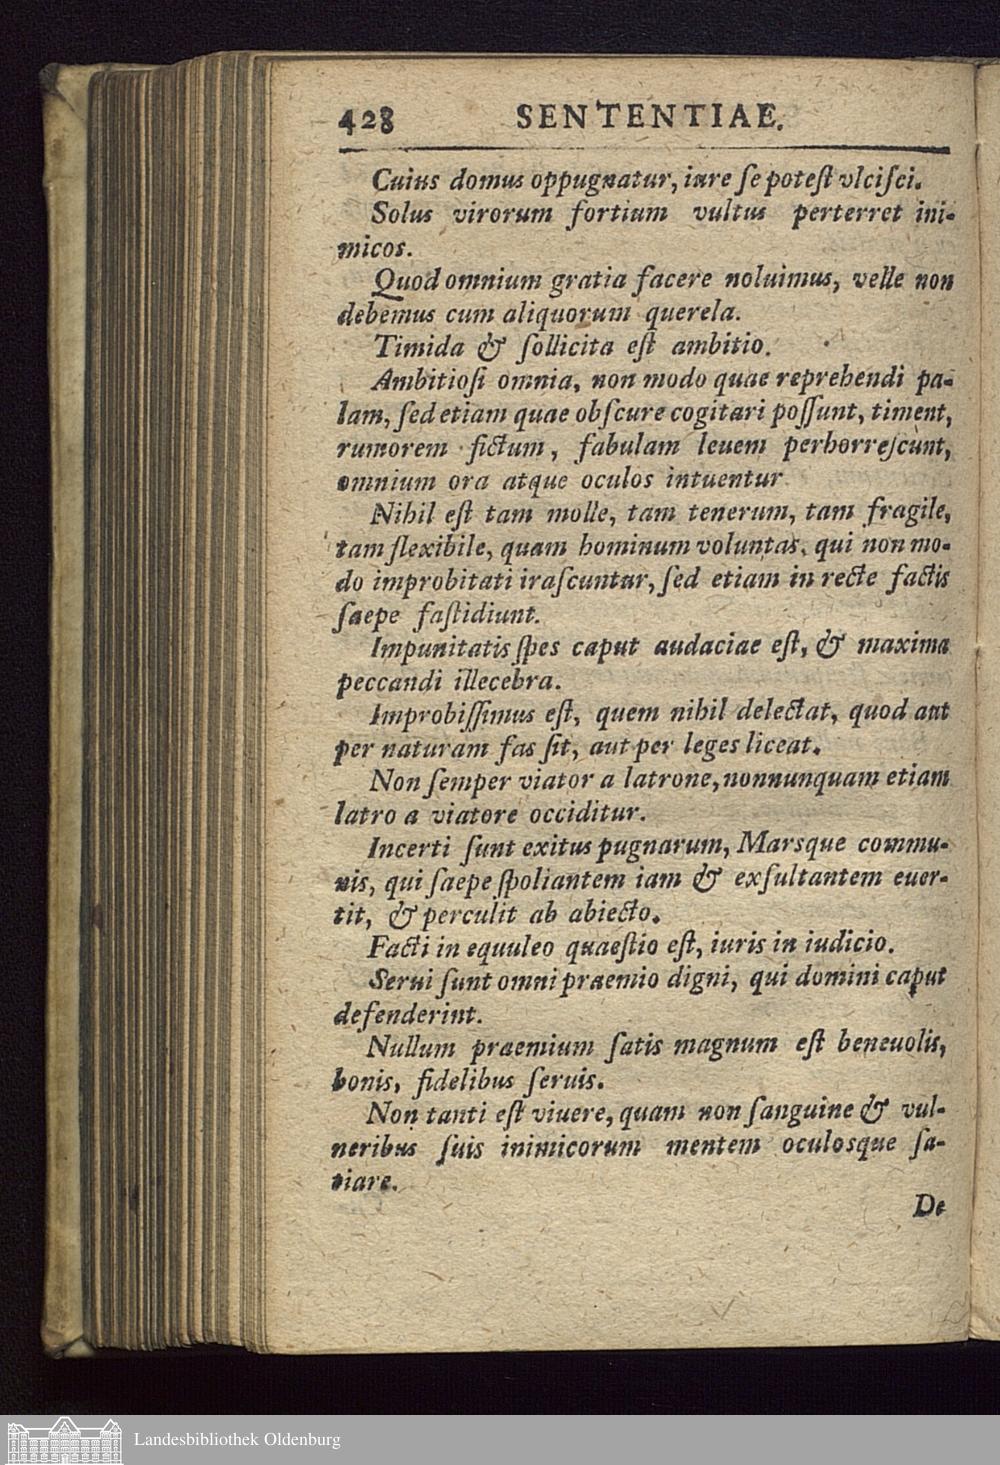 428 SENTENTIAE.
Cuius domus oppugnatur, iure ſe poteſt vlciſci.
Solus virorum fortium vultus perterret ini-
micos.
Quod omnium gratia facere noluimus, velle non
debemus cum aliquorum querela.
Timida & ſollicita eſt ambitio.
Ambitioſi omnia, non modo quae reprehendi pa-
lam, ſed etiam quae obſcure cogitari poſſunt, timent,
rumorem fictum, fabulam leuem perhorreſcunt,
omnium ora atque oculos intuentur
Nihil eſt tam molle, tam tenerum, tam fragile,
tam flexibile, quam hominum voluntas, qui non mo-
do improbitati iraſcuntur, ſed etiam in recte factis
ſaepe faſtidiunt.
Impunitatis ſpes caput audaciae eſt, & maxima
peccandi illecebra.
Improbiſſimus eſt, quem nihil delectat, quod aut
per naturam fas ſit, aut per leges liceat.
Non ſemper viator a latrone, nonnunquam etiam
latro a viatore occiditur.
Incerti ſunt exitus pugnarum, Marsque commu-
nis, qui ſaepe ſpoliantem iam & exſultantem euer-
tit, & perculit ab abiecto.
Facti in equuleo quaeſtio eſt, iuris in iudicio.
Serui ſunt omni praemio digni, qui domini caput
defenderint.
Nullum praemium ſatis magnum eſt beneuolis,
bonis, fidelibus ſeruis.
Non tanti eſt viuere, quam non ſanguine & vul-
neribus ſuis inimicorum mentem oculosque ſa-
tiare.
De
Landesbibliothek Oldenburg